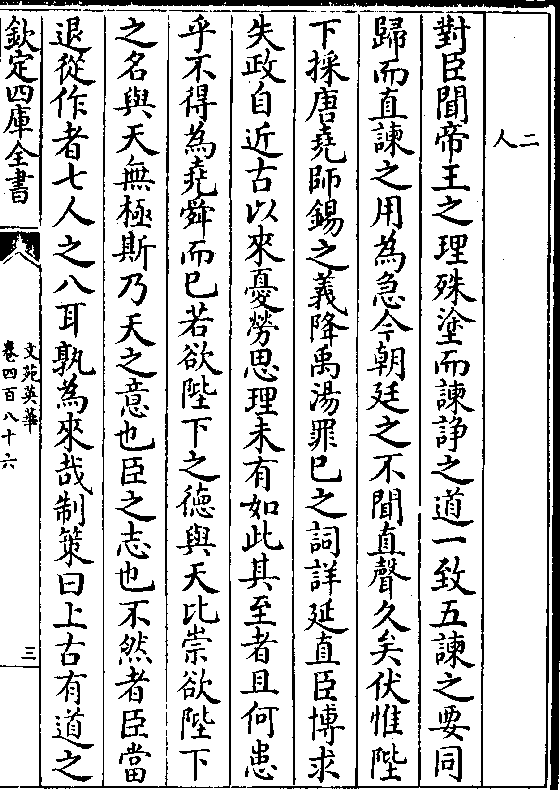 二人
對臣聞帝王之理殊塗而諫諍之道一致五諫之要同
歸而直諫之用為急今朝廷之不聞直聲久矣伏惟陛
下採唐堯師錫之義降禹湯罪已之詞詳延直臣博求
失政自近古以來憂勞思理未有如此其至者且何患
乎不得為堯舜而已若欲陛下之德與天比崇欲陛下
之名與天無極斯乃天之意也臣之志也不然者臣當
退從作者七人之八耳孰為來哉制策曰上古有道之
欽定四庫全書
文苑英華
卷四百八十六
三